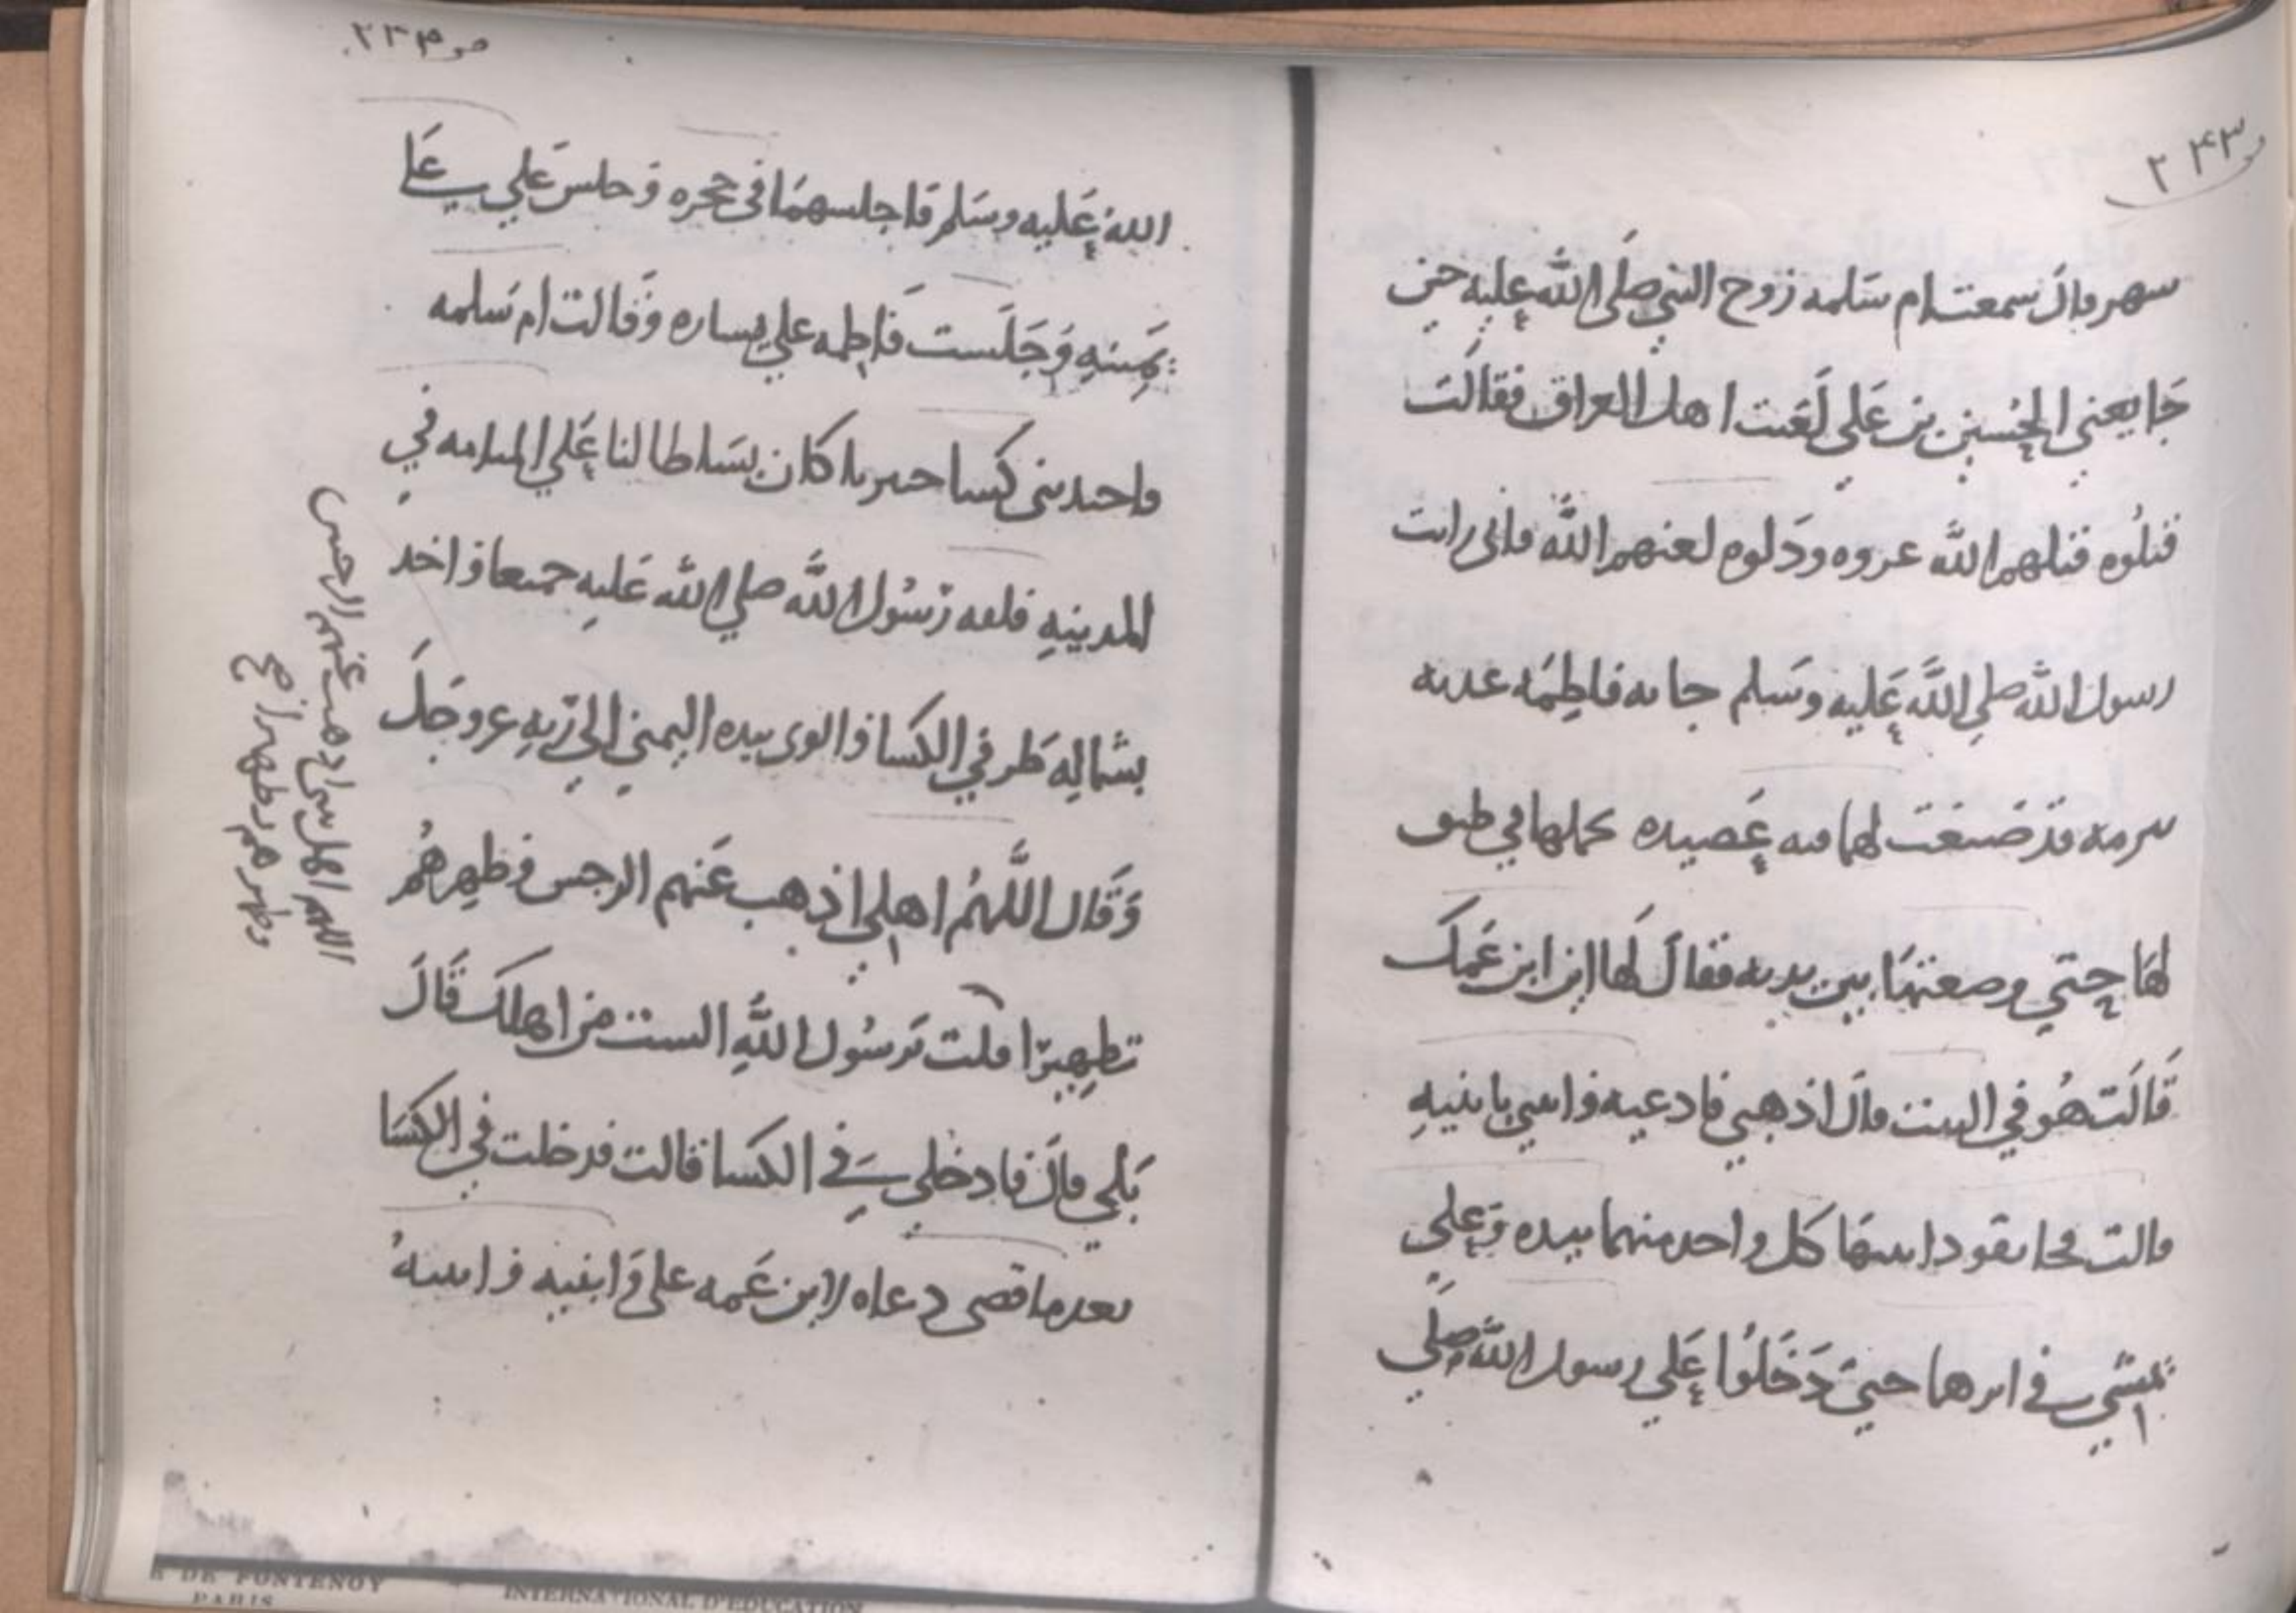 ٢٤٣
سهر قال سمعت ام سلمه زوج النبي صلى الله عليه حين
جا يعني الحسين بن علي لعنت اهل العراق فقالت
قتلوه قتلهم الله عروه ودلوه لعنهم الله فاني رايت
رسول الله صلي الله عليه وسلم جاته فاطمه غديه
ببرمه قد صنعت لهما فيه عصيده تحملها في طبق
لها حتي وضعتها بين يديه فقال لها اين ابن عمك
قالت هو في البيت قال اذهبي فادعيه وايتي بابنيه
قالت فجا تقود ابنيها كل واحد منهما بيده وعلي
يمشي في اثرهما حتي دخلوا علي رسول الله صلي
الله عليه وسلم فاجلسهما في حجره وجلس علي علي
يمينه وجلست فاطمه علي يساره وقالت ام سلمه
واجتبذ مني كسا خيبريا كان بساطا لنا علي المنامه في
المدينه فلفه رسول الله صلي الله عليه جميعا واخذ
بشماله طرفي الكسا والوى بيده اليمني الي ربه عز وجل
وقال اللهم اهلي اذهب عنهم الرجس وطهرهم
تطهيرا قلت يرسول الله الست من اهلك قال
بلي قال فادخلي في الكسا قالت فدخلت في الكسا
بعدما قضى دعاه لابن عمه علي وابنيه وابنته
اللهم اهل بيتي اذهب عنهم الرجس
وطهرهم تطهيرا
E DE FONTENOY
PARIS
INTERNATIONAL D'EDUCATION